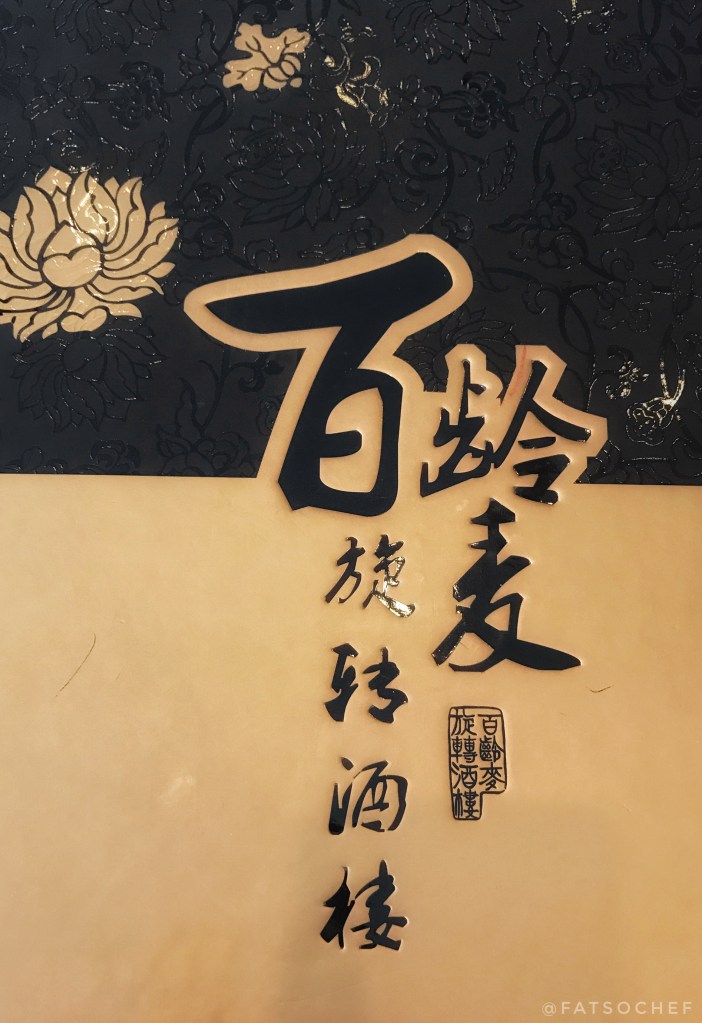 百龄麦
旋转酒楼
百齡麥
旋轉酒樓
@FATSOCHEF